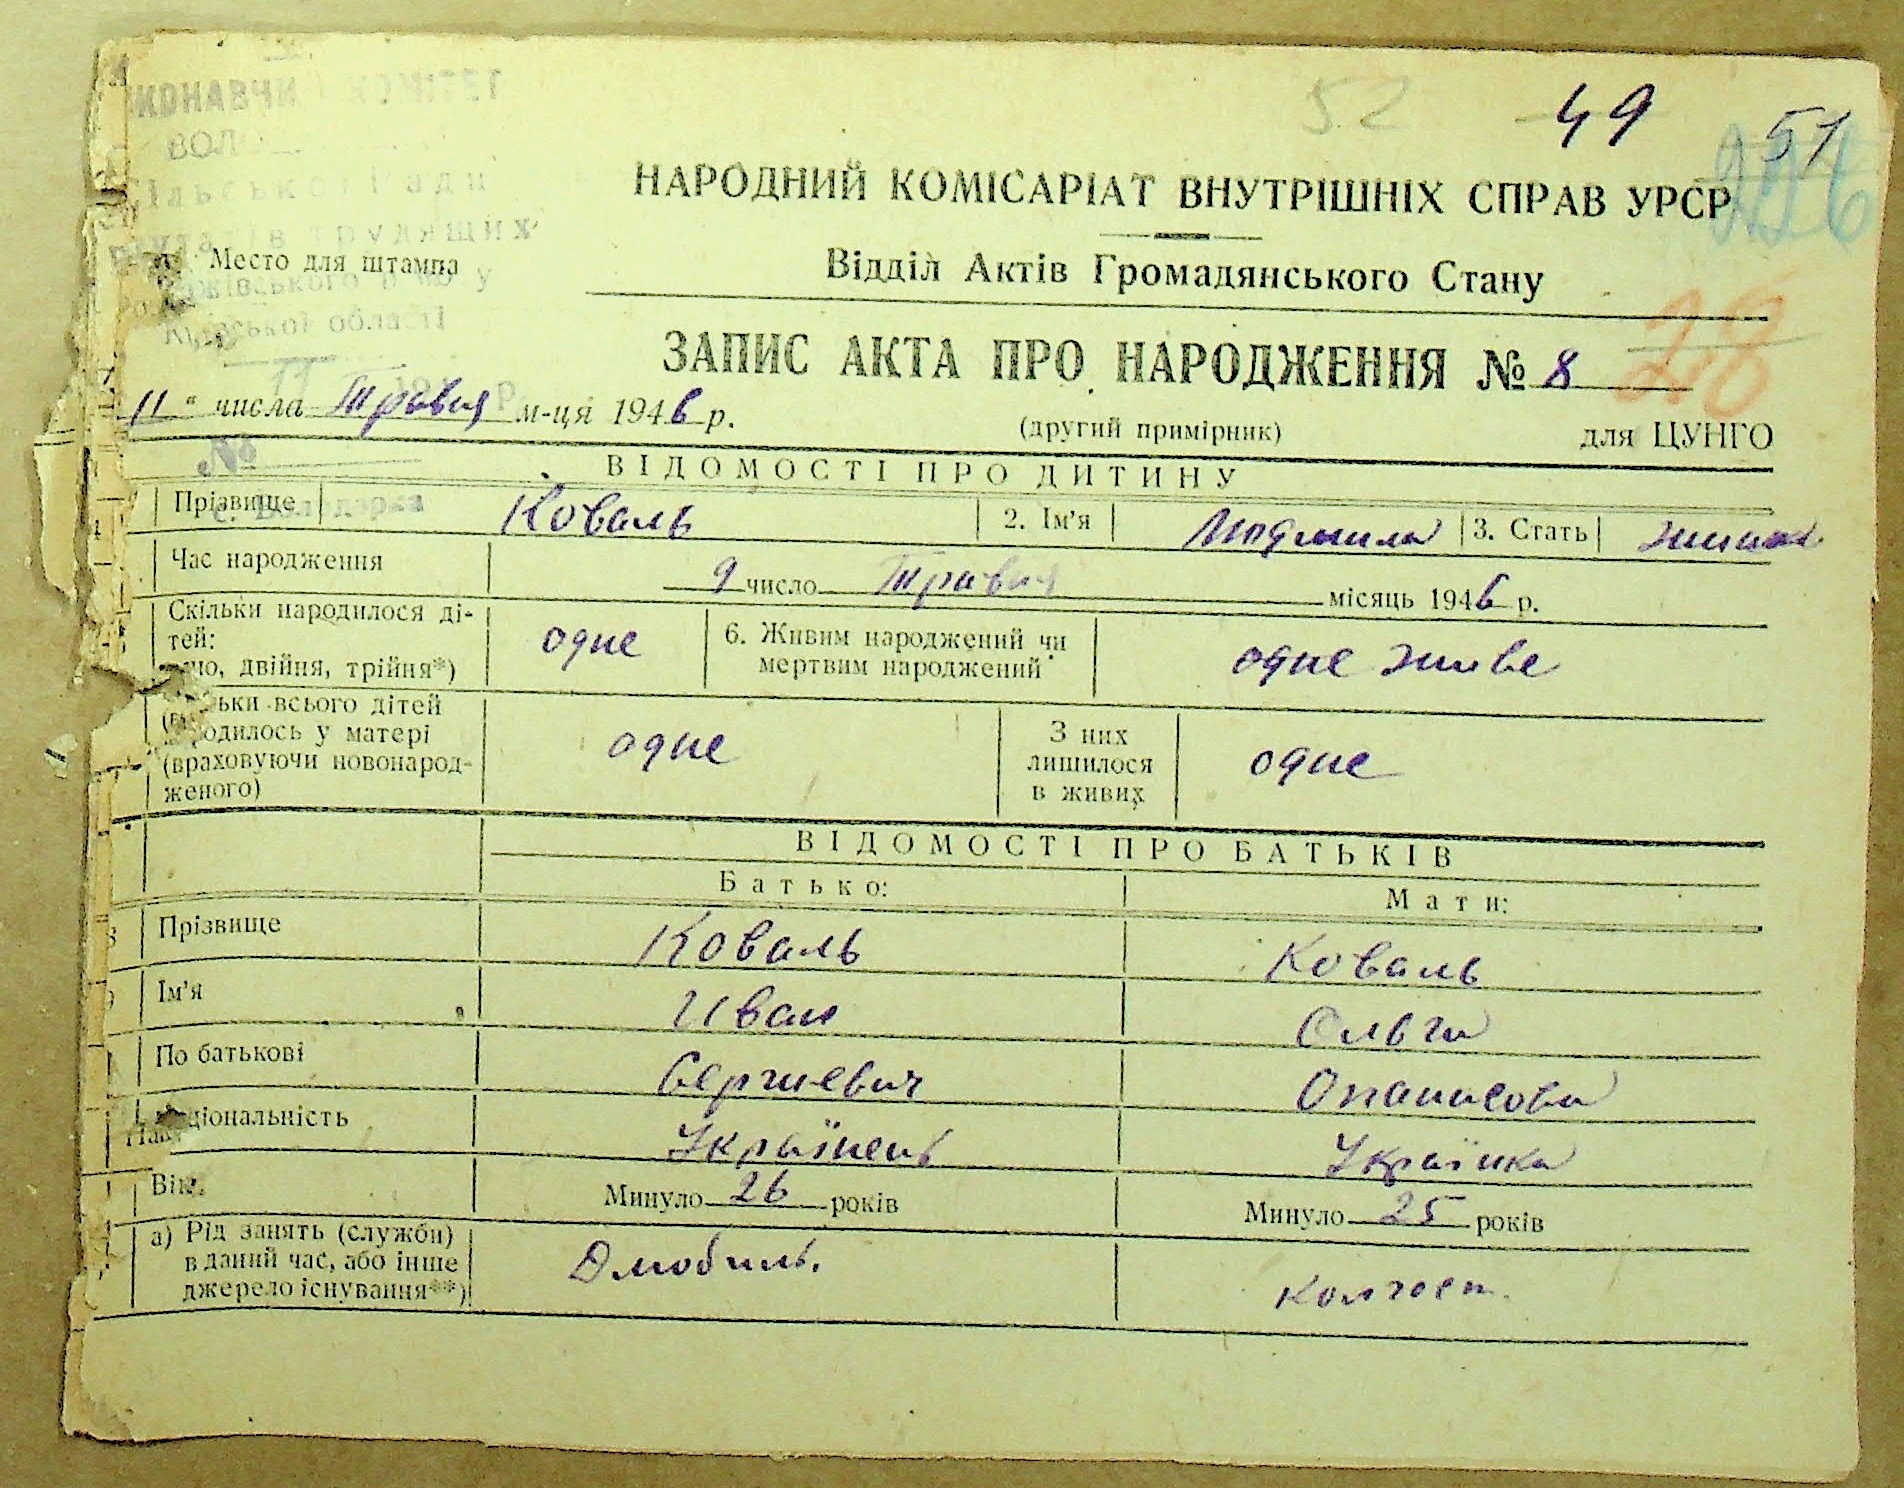 52 49 51
226
КОНАВЧИ
ВОЛ
НАРОДНИЙ КОМІСАРІАТ ВНУТРІШНІХ СПРАВ УРСР
Место для штампа
Відділ Актів Громадянського Стану
області
28
ЗАПИС АКТА ПРО НАРОДЖЕННЯ № 8
11 " числа Травня м-ця 1946 р.
(другий примірник) для ЦУНГО
№
ВІДОМОСТІ ПРО ДИТИНУ
с. Володарка
Прізвище Коваль 2. Ім'я Людмила 3. Стать
Час народження 9 число Травня місяць 1946 р.
Скільки народилося ді-
тей:
но, двійня, трійня*) одне 6. Живим народжений чи
мертвим народжений одне живе
ьки всього дітей
одилось у матері
(враховуючи новонарод-
женого) одне З них
лишилося
в живих одне
ВІДОМОСТІ ПРО БАТЬКІВ
Батько: Мати:
Прізвище Коваль Коваль
Ім'я Иван Ольга
По батькові Сергиевич Опанасовна
ціональність Українець Українка
Вік. Минуло 26 років Минуло 25 років
а) Рід занять (служби)
в даний час, або інше
джерело існування**) колгосп.